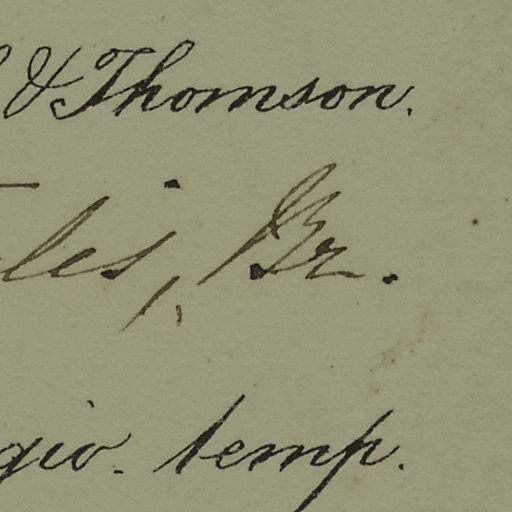 & Thomson.
les, Br.
gio. temp.